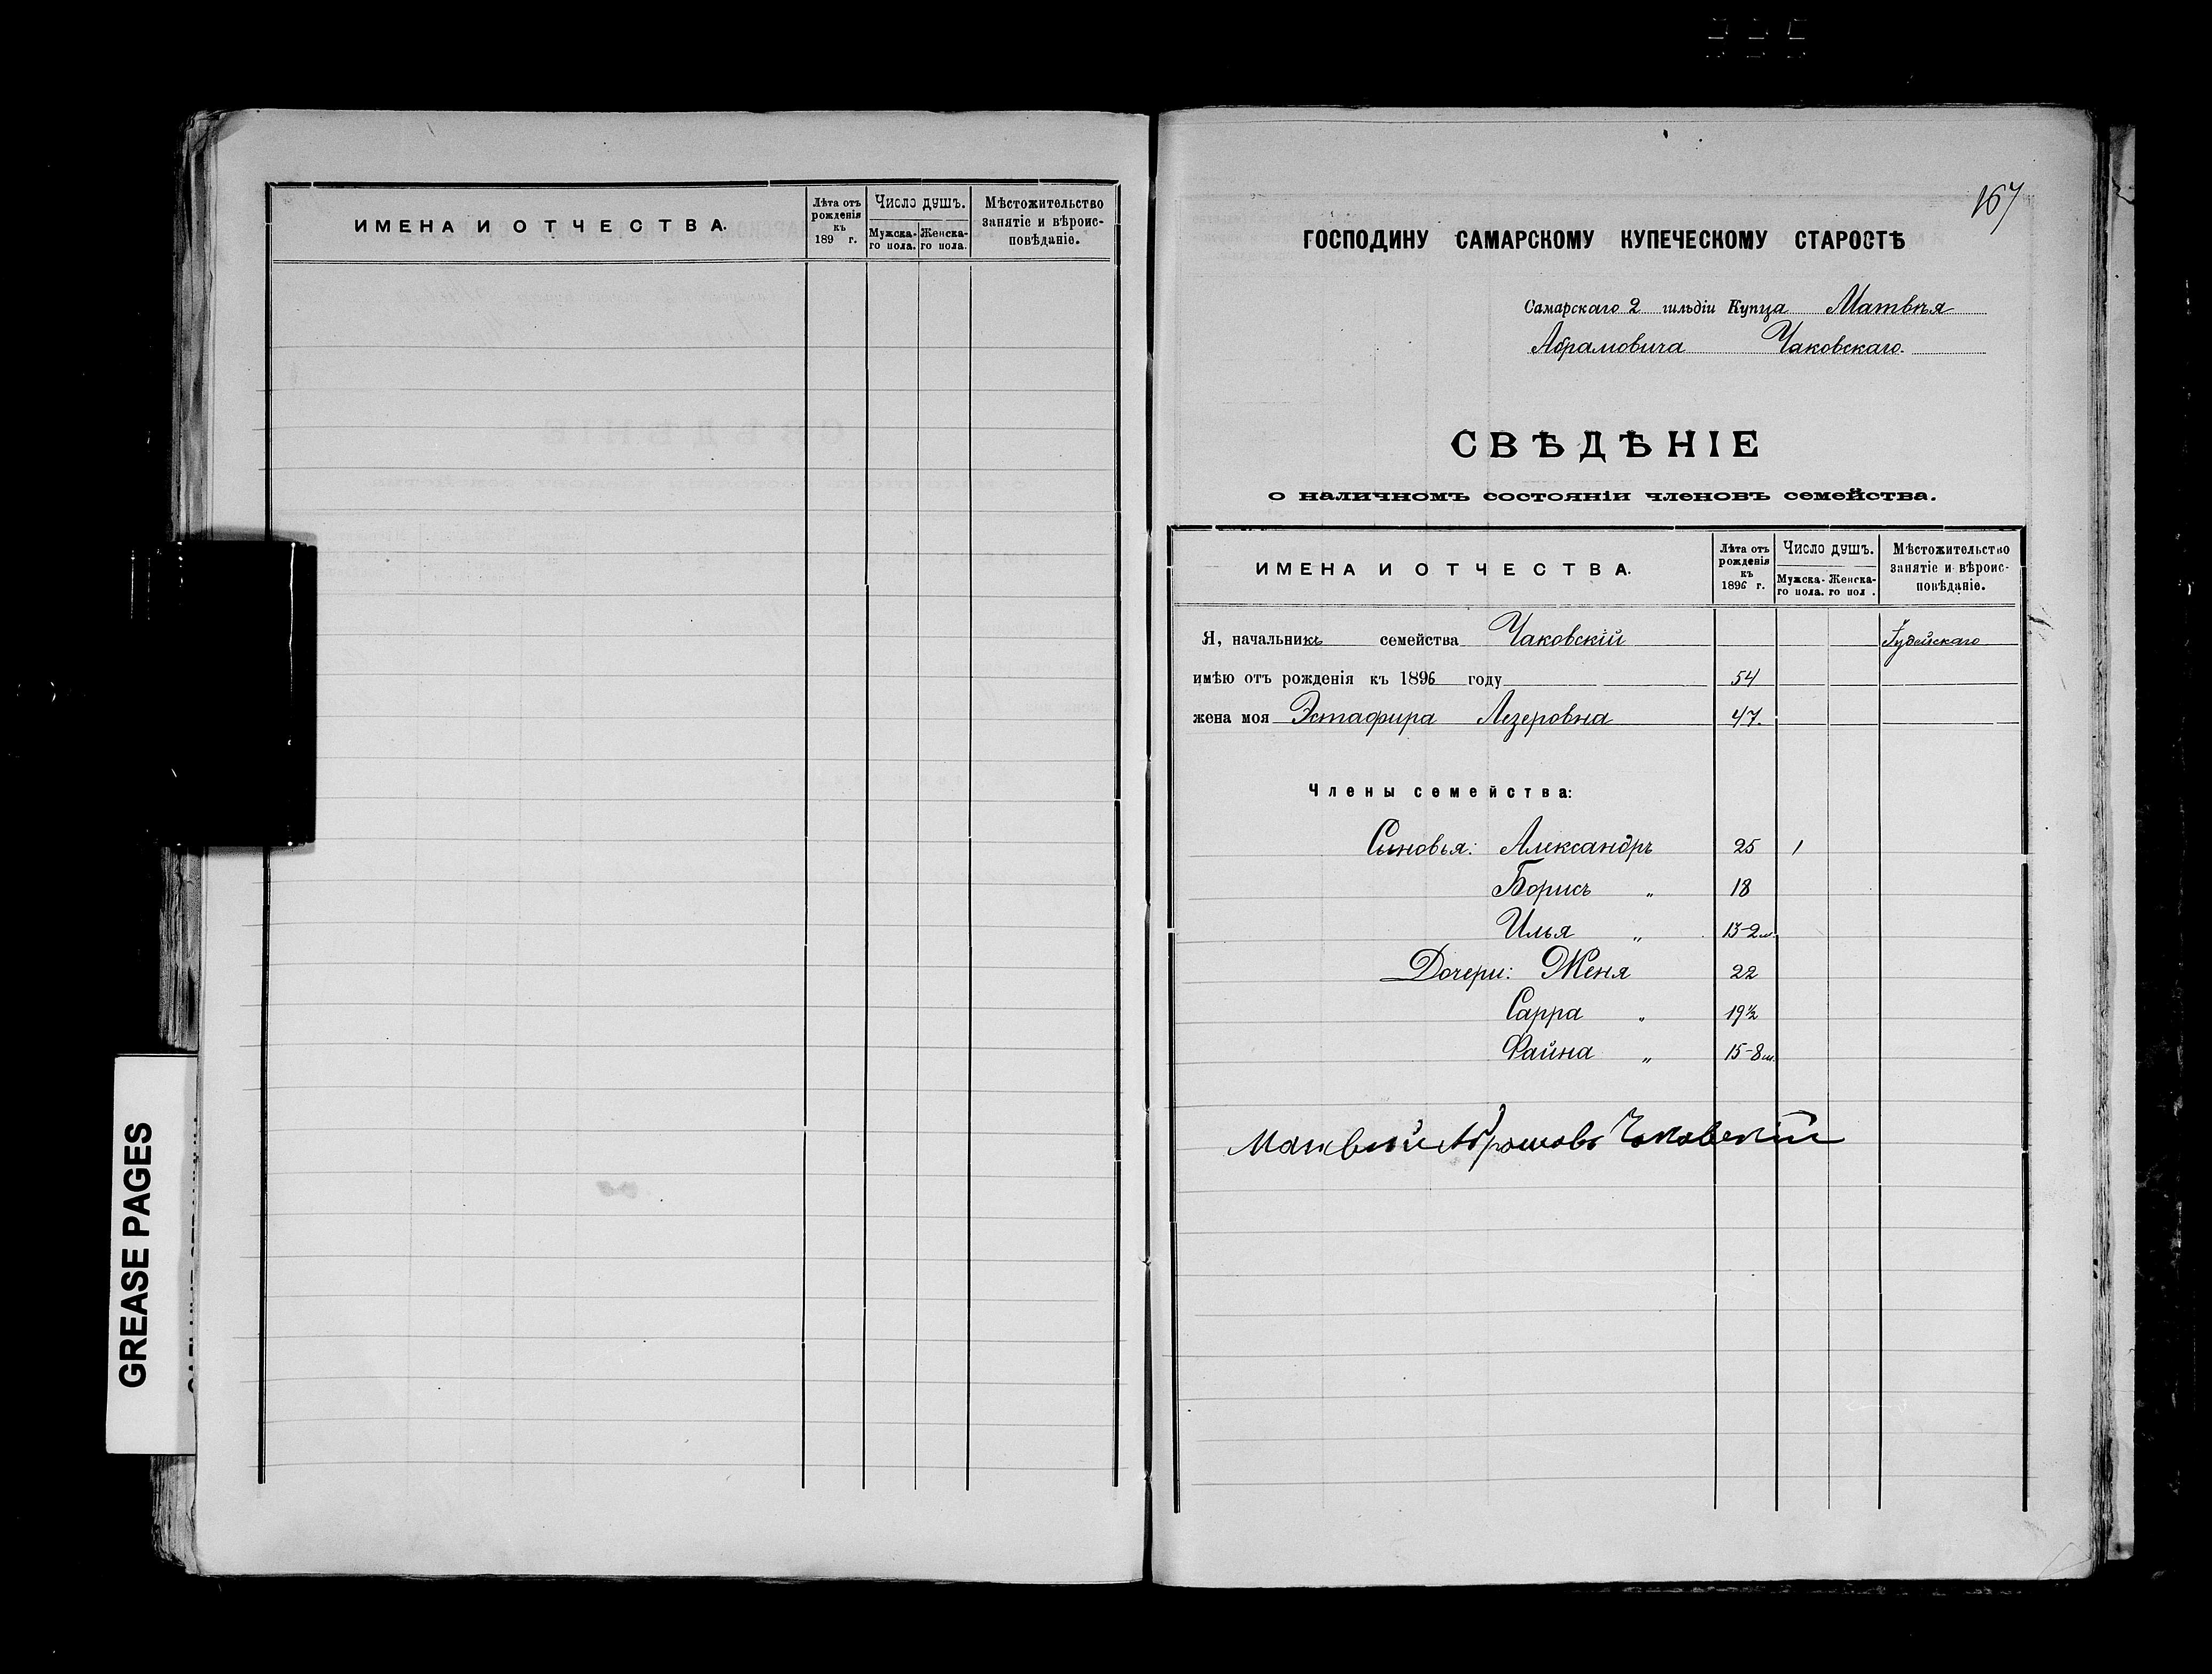 ИМЕНА И ОТЧЕСТВА.
Лѣта отъ рожденія къ 189 г.
Число душъ.
Мужска-го пола.
Женска-го пола.
Мѣстожительство занятіе и вѣроис-повѣданіе.
GREASE PAGES
167
ГОСПОДИНУ САМАРСКОМУ КУПЕЧЕСКОМУ СТАРОСТѢ
Самарскаго 2 гильдіи Купца Матвѣя
Абрамовича Чаковскаго.
СВѢДѢНІЕ
о наличномъ состояніи членовъ семейства.
ИМЕНА И ОТЧЕСТВА.
Лѣта отъ рожденія къ 1896 г.
Число душъ.
Мужска-го пола.
Женска-го пол .
Мѣстожительство занятіе и вѣроис-повѣданіе.
Я, начальникъ семейства Чаковскій Іудейскаго
имѣю отъ рожденія къ 1896 году 54
жена моя Эстафира Лезеровна 47.
Члены семейства:
Сыновья: Александръ 25 1
Борисъ " 18
Илья " 13-2м.
Дочери: Женя 22
Сарра " 19½
Файна " 15-8м.
Матвей Абрамовъ Чаковскій